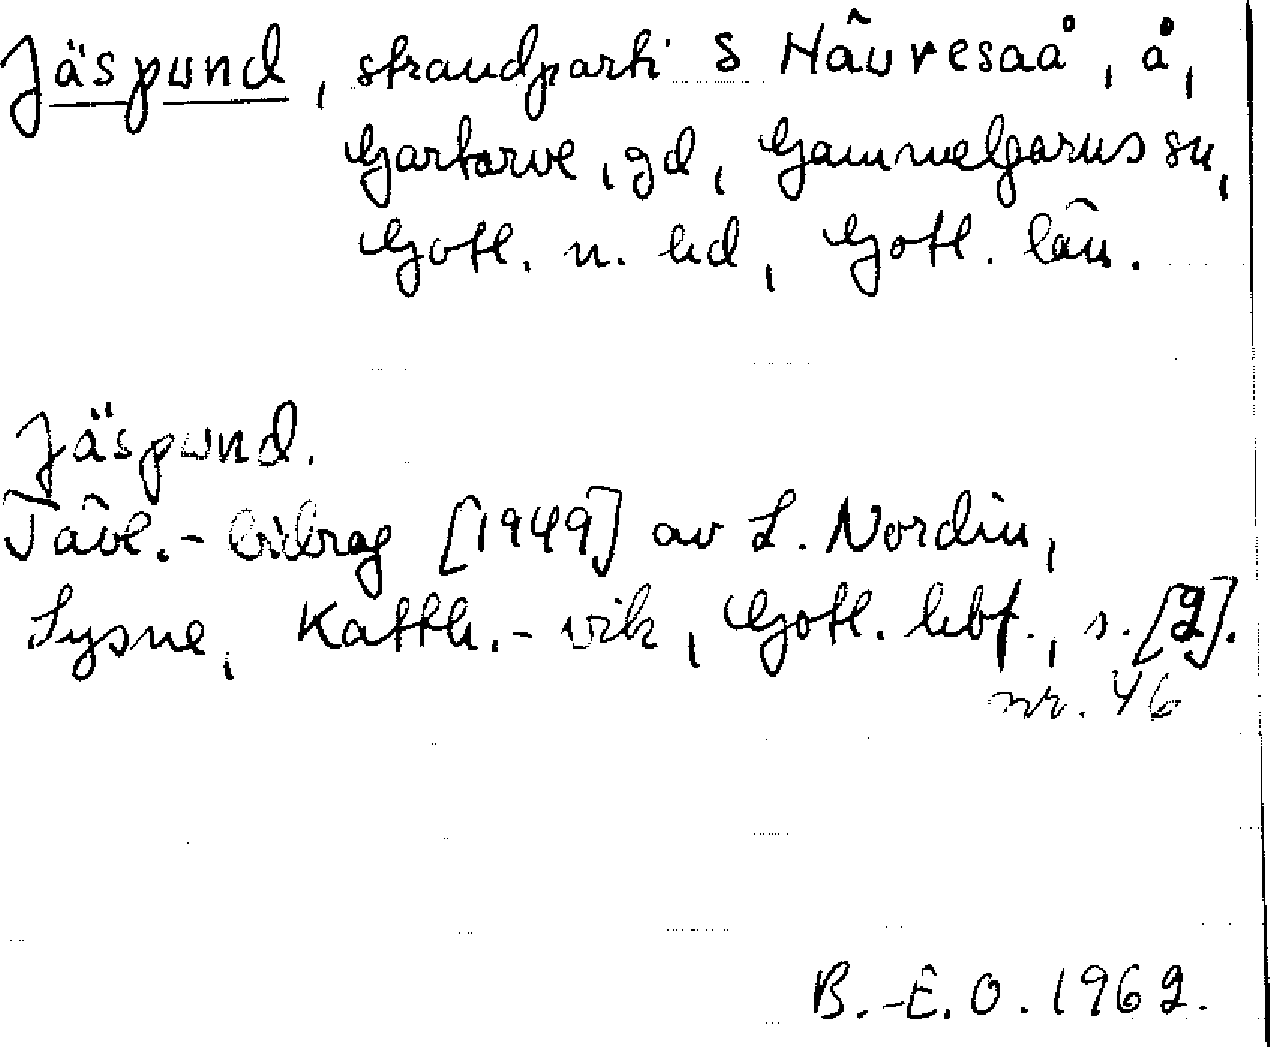 Jäspund, strandparti S Hävresaå, å,
Gartarve, gd, Gammelgarns sn,
Gotl. n. hd, Gotl. län.
Jäspund.
Tävl.-bidrag [1949] av L. Nordin,
Sysne, Katth.-vik, Gotl. hbf., s. [2].
nr. 46
B.-E.O. 1962.